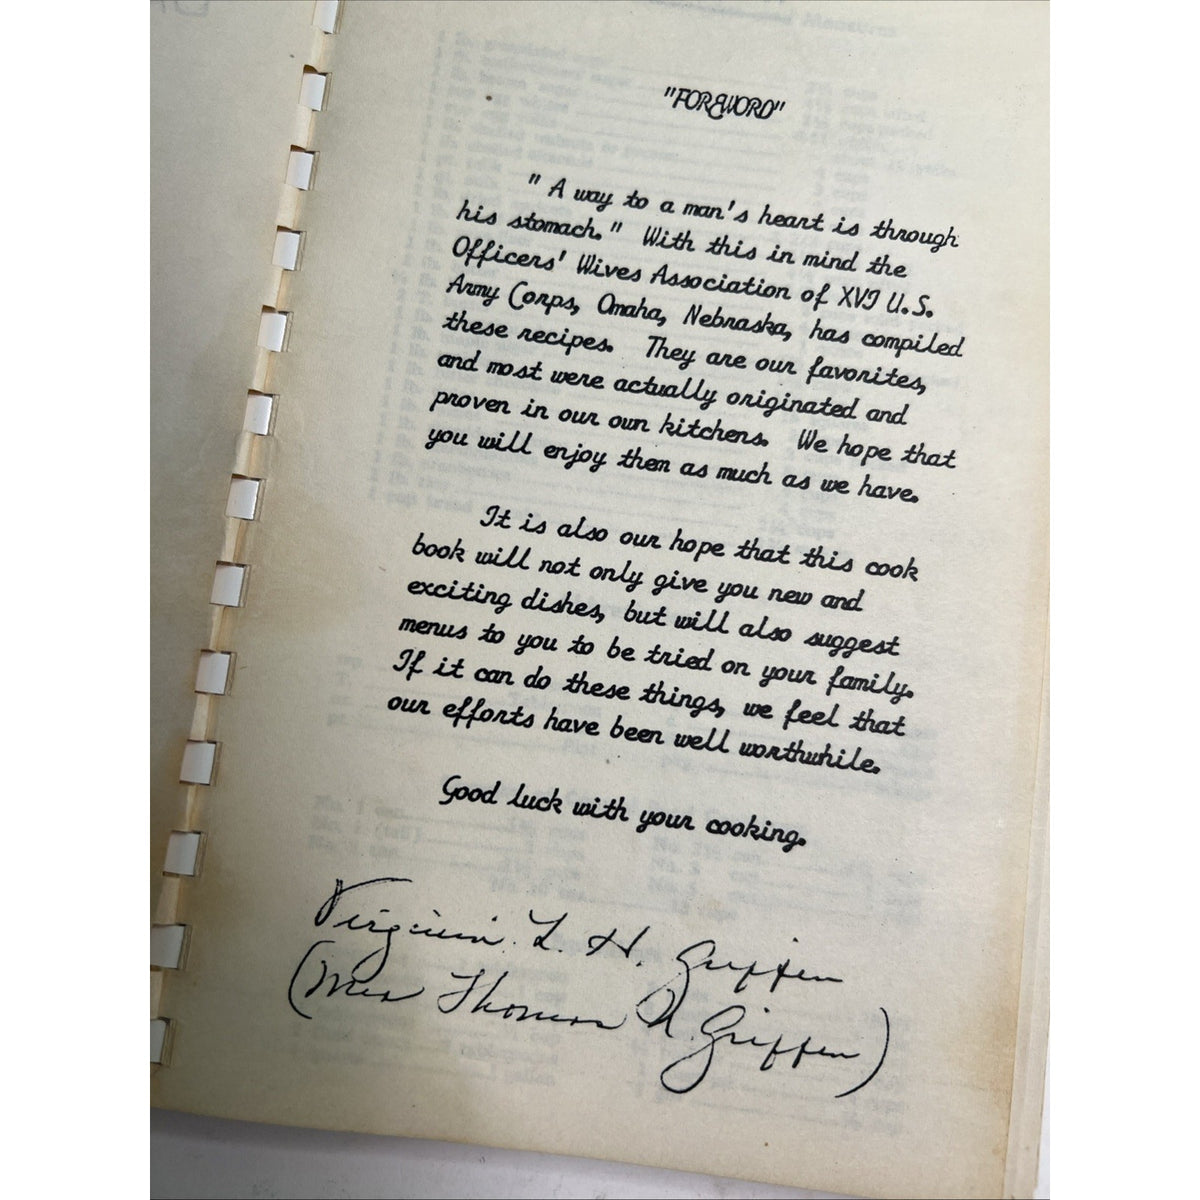 "FOREWORD"
" A way to a man's heart is through
his stomach." With this in mind the
Officers' Wives Association of XVI U.S.
Army Corps, Omaha, Nebraska, has compiled
these recipes. They are our favorites,
and most were actually originated and
proven in our own kitchens. We hope that
you will enjoy them as much as we have.
It is also our hope that this cook
book will not only give you new and
exciting dishes, but will also suggest
menus to you to be tried on your family.
If it can do these things, we feel that
our efforts have been well worthwhile.
Good luck with your cooking.
Virginia L. H. Griffen
(Mrs Thomas N. Griffen)